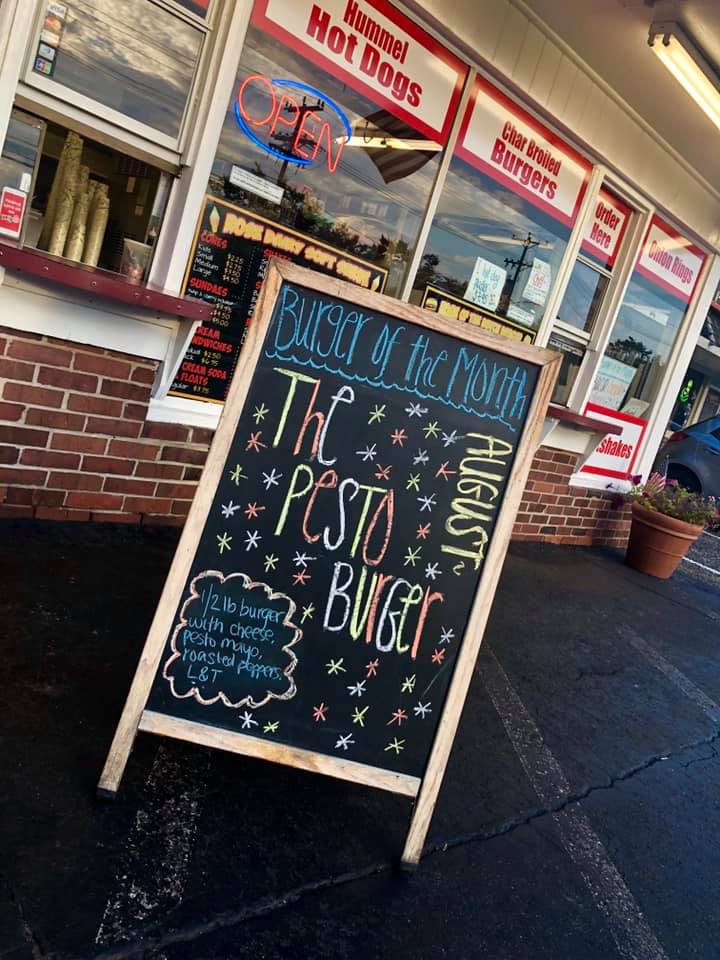 Hummel
Hot Dogs
OPEN
Char Broiled
Burgers
Order
Here
Onion Rings
shakes
CONES
Kids
Small
Medium
Large
SUNDAES
CREAM SODA
FLOATS
Burger of the Month
AUGUST
The
Pesto
Burger
1/2 lb burger
with cheese,
pesto mayo,
roasted peppers,
L&T